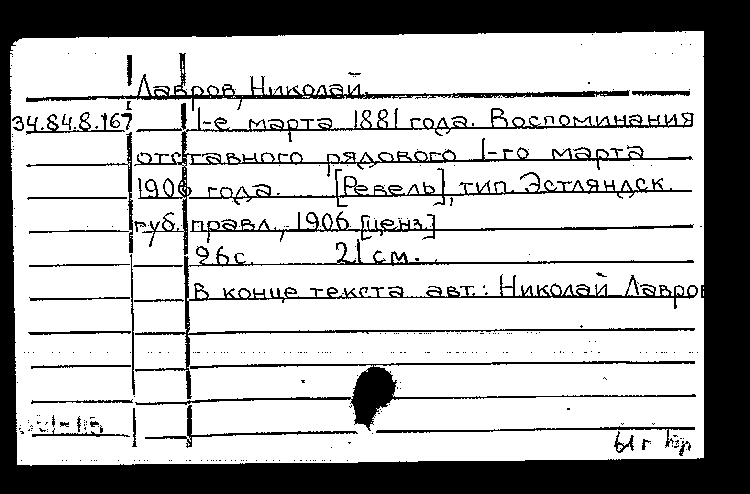 Лавров, Николай.
34.84.8.167 1-е марта 1881 года. Воспоминания
отставного рядового 1-го марта
1906 года. [Ревель], тип. Эстляндск.
губ. правл., 1906 [ценз]
26с. 21 см.
В конце текста авт.: Николай Лавров
61 г